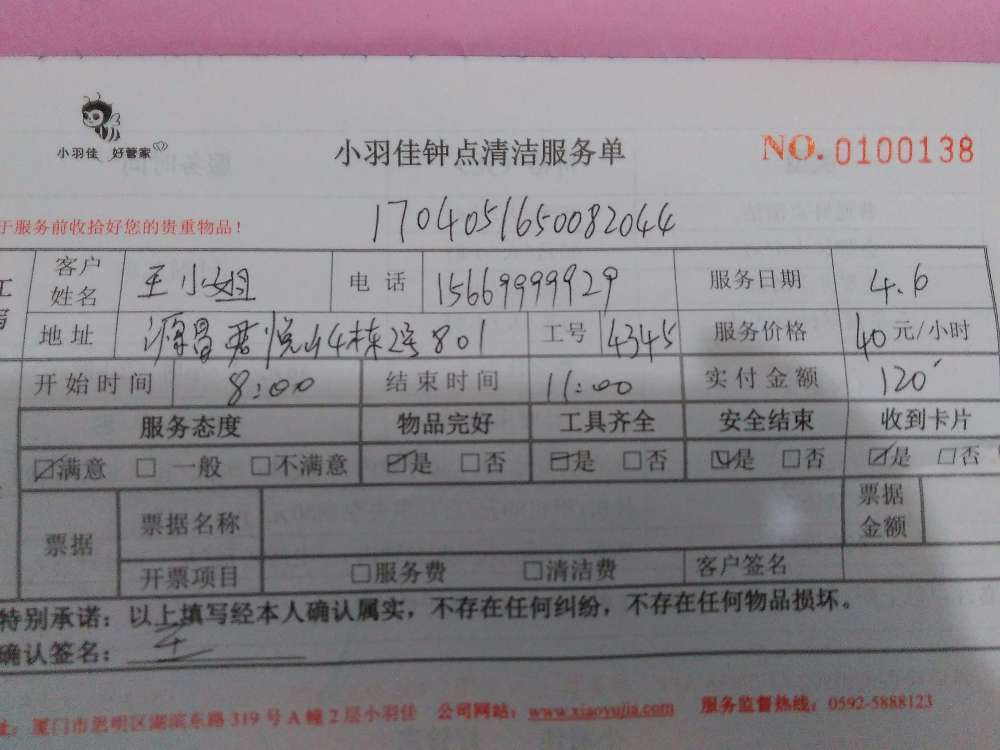 小羽佳 好管家
小羽佳钟点清洁服务单 NO. 0100138
于服务前收拾好您的贵重物品!
1704051650082044
客户姓名 王小姐 电话 15669999929 服务日期 4.6
地址 源昌君悦山4栋2号801 工号 4345 服务价格 40元/小时
开始时间 8:00 结束时间 11:00 实付金额 120
服务态度 物品完好 工具齐全 安全结束 收到卡片
☑满意 □ 一般 □不满意 ☑是 □否 ☑是 □否 ☑是 □否 ☑是 □否
票据 票据名称 票据金额
开票项目 □服务费 □清洁费 客户签名
特别承诺：以上填写经本人确认属实，不存在任何纠纷，不存在任何物品损坏。
确认签名： 王
址：厦门市思明区湖滨东路319号A幢2层小羽佳 公司网站：www.xiaoyujia.com 服务监督热线：0592-5888123